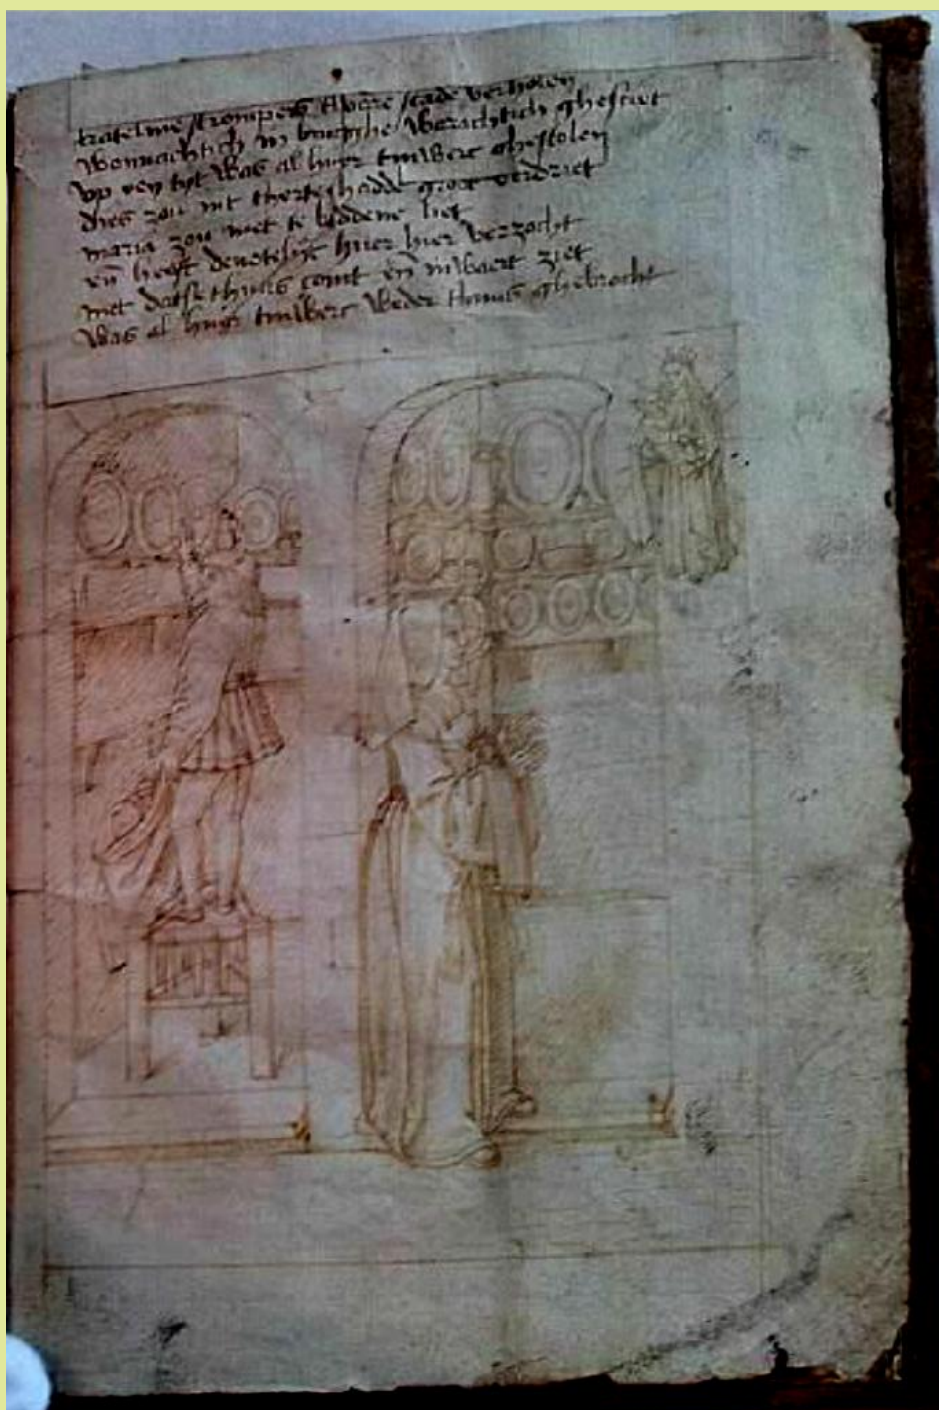 kateline strompers thaere scade verholen
wonnachtich in brugghe warachtich ghesciet
up eenen tyt was al huer tinwerc ghestolen
dies zou int therte hadde groot verdriet
maria zou niet te biddene liet
eñ heeft devotelijc huer hier verzocht
met dat se thuus comt eñ inwaert ziet
was al huer tinwerc weder thuus ghebrocht